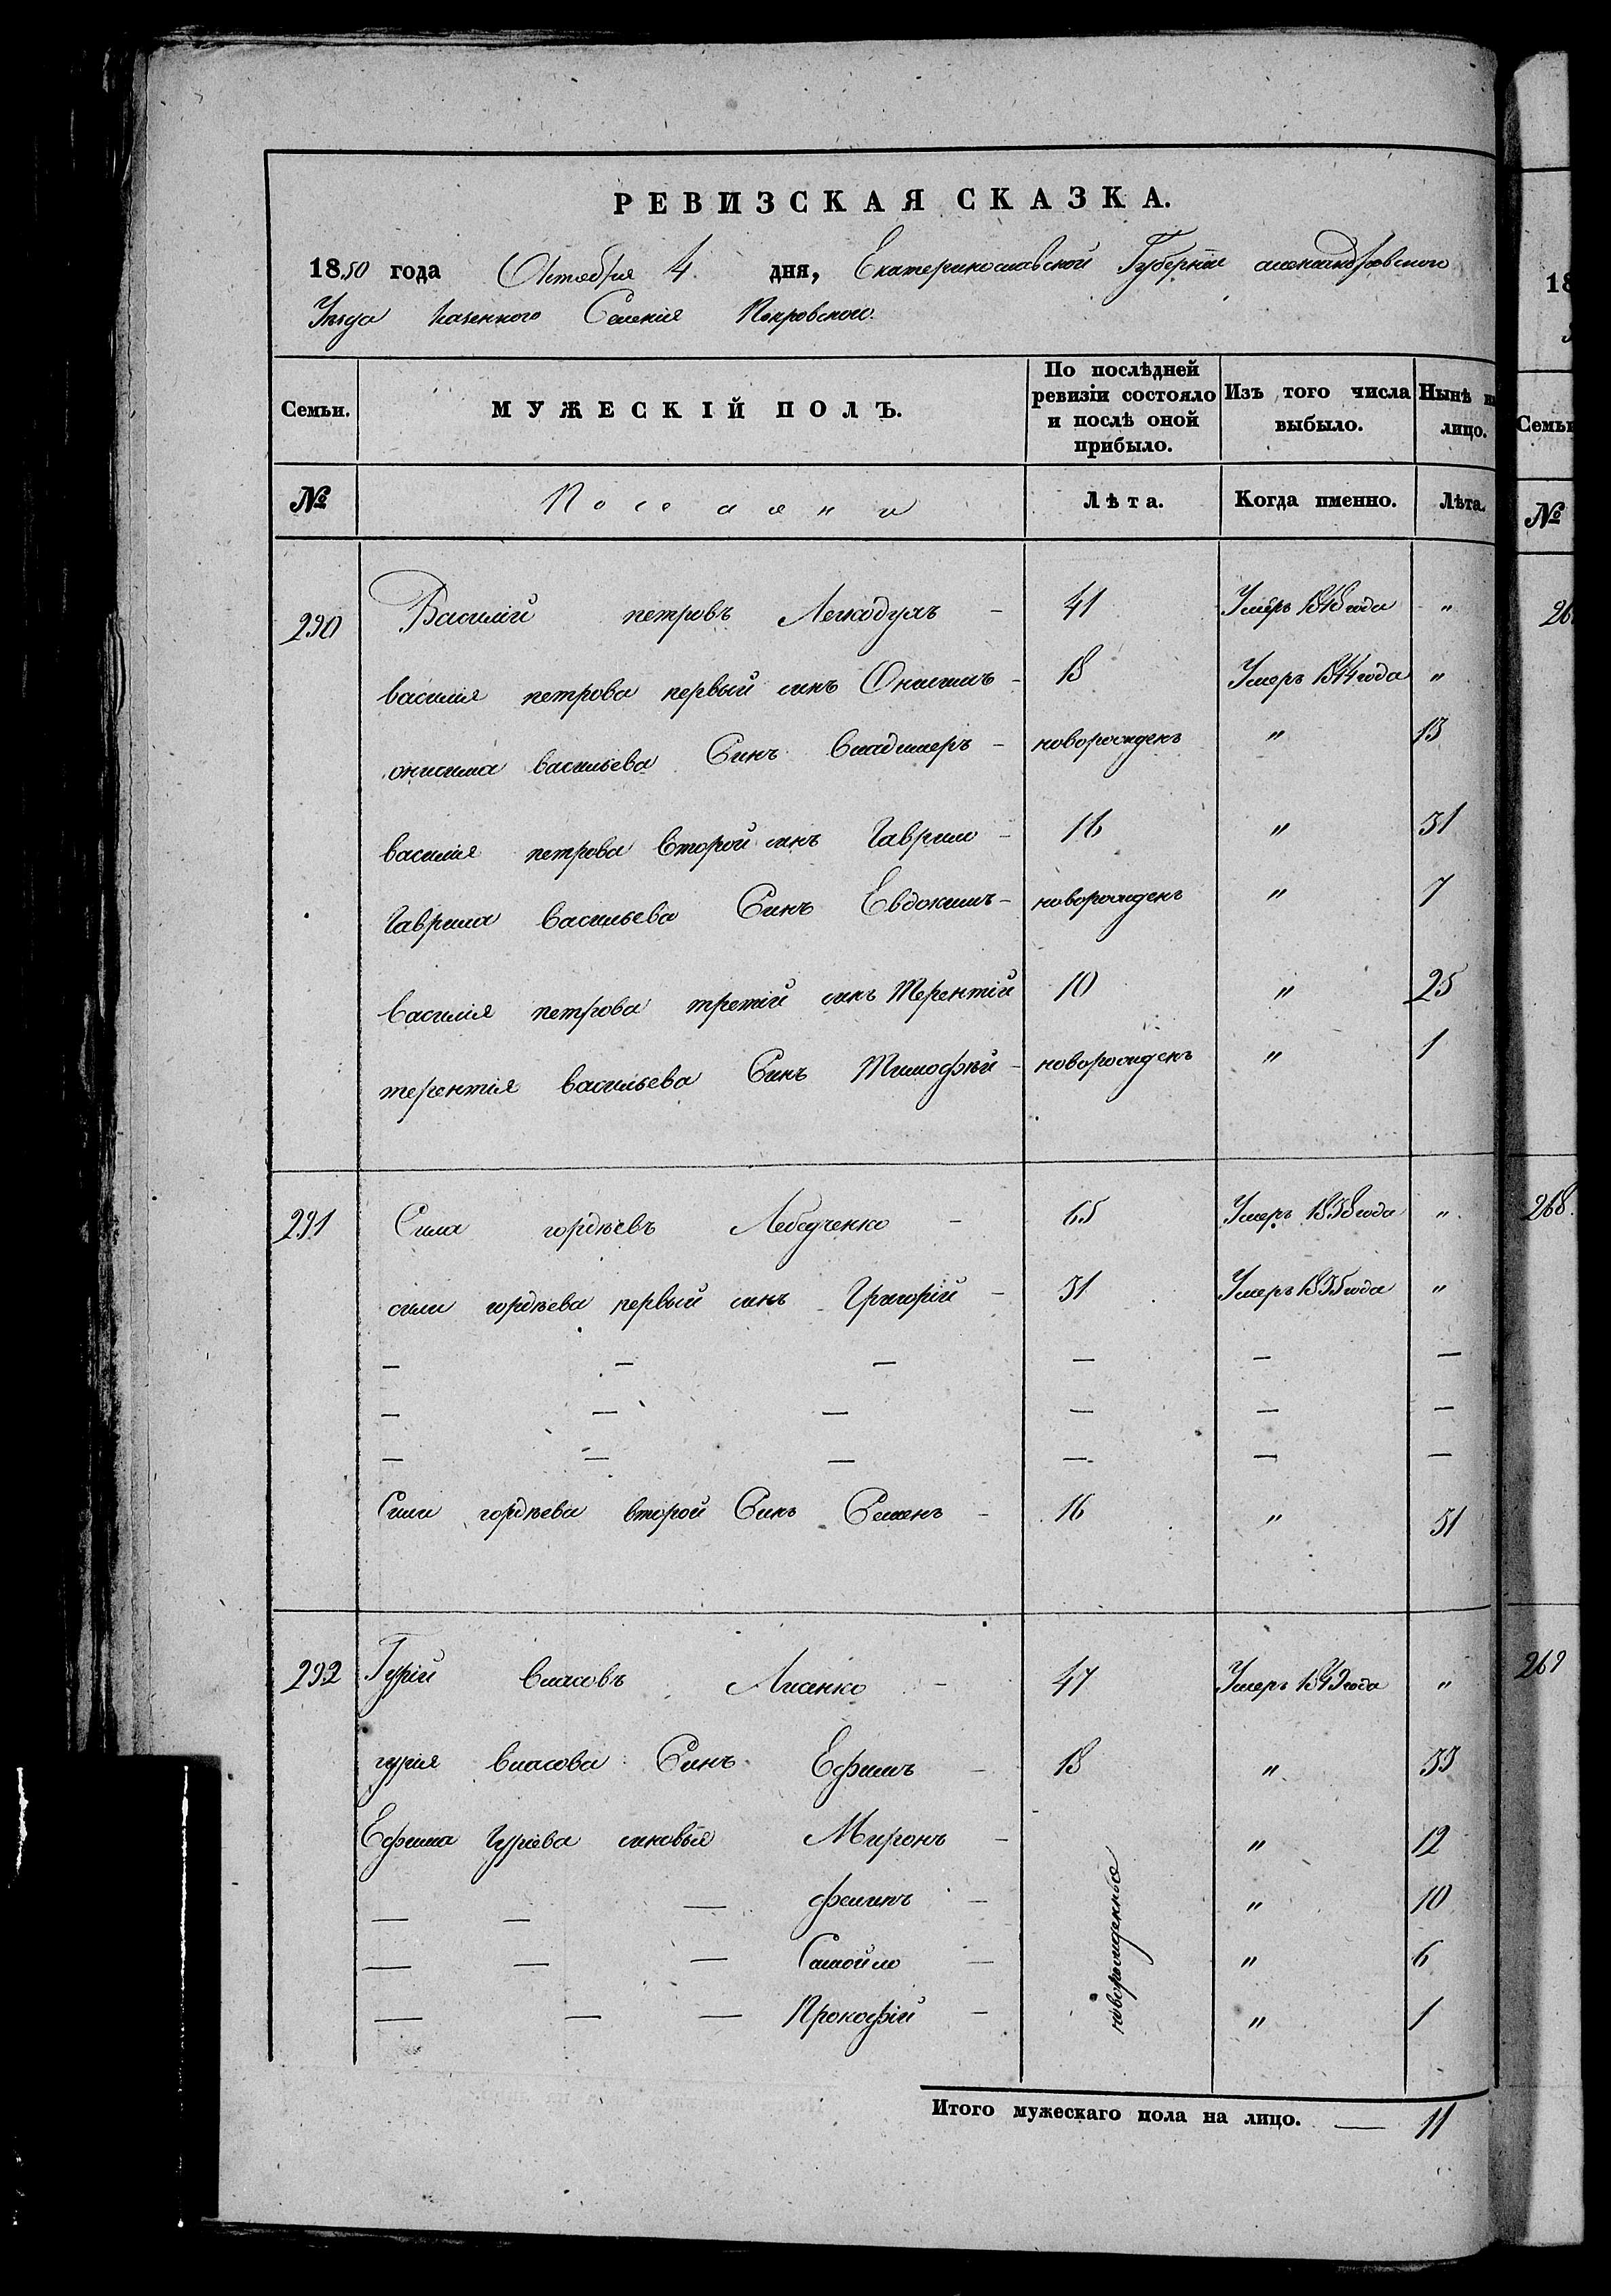 РЕВИЗСКАЯ СКАЗКА.
1850 года Октября 4. дня, Екатеринославской Губерніи александровского
Уезда казенного Селенія Покровского.
Семьи. МУЖЕСКІЙ ПОЛЪ. По послѣдней ревизіи состояло и послѣ оной прибыло. Изъ того числа выбыло. Нынѣ на лицо.
№ Поселяни Лѣта. Когда именно. Лѣта.
290 Василій петровъ Легкодухъ - 41 Умеръ 1848 года "
василія петрова первый синъ Онисимъ - 18 Умеръ 1844 года "
онисима васильева Синъ Владимеръ - новорожденъ " 13
василія петрова второй синъ Гаврило - 16 " 31
Гаврила Васильева Синъ Евдокимъ - новорожденъ " 7
василія петрова третій синъ Терентій 10 " 25
терентія васильева Синъ Тимофѣй - новорожденъ " 1
291 Сила гордѣевъ Лебедченко - 65 Умеръ 1838 года "
сили гордѣева первый синъ Григорій - 31 Умеръ 1835 года "
— — — — — —
— — — — — —
— — — — — —
Сили гордѣева второй Синъ Семенъ - 16 " 31
292 Гурій власовъ Лисенко - 47 Умеръ 1849 года "
гурія власова Синъ Ефимъ - 18 " 33
Ефима Гуріева синовья Миронъ - новорожденные " 12
— — — филипъ - " 10
— — — Самойло - " 6
— — — Прокофій - " 1
Итого мужескаго пола на лицо. — 11
18
Семьи
№
268.
269